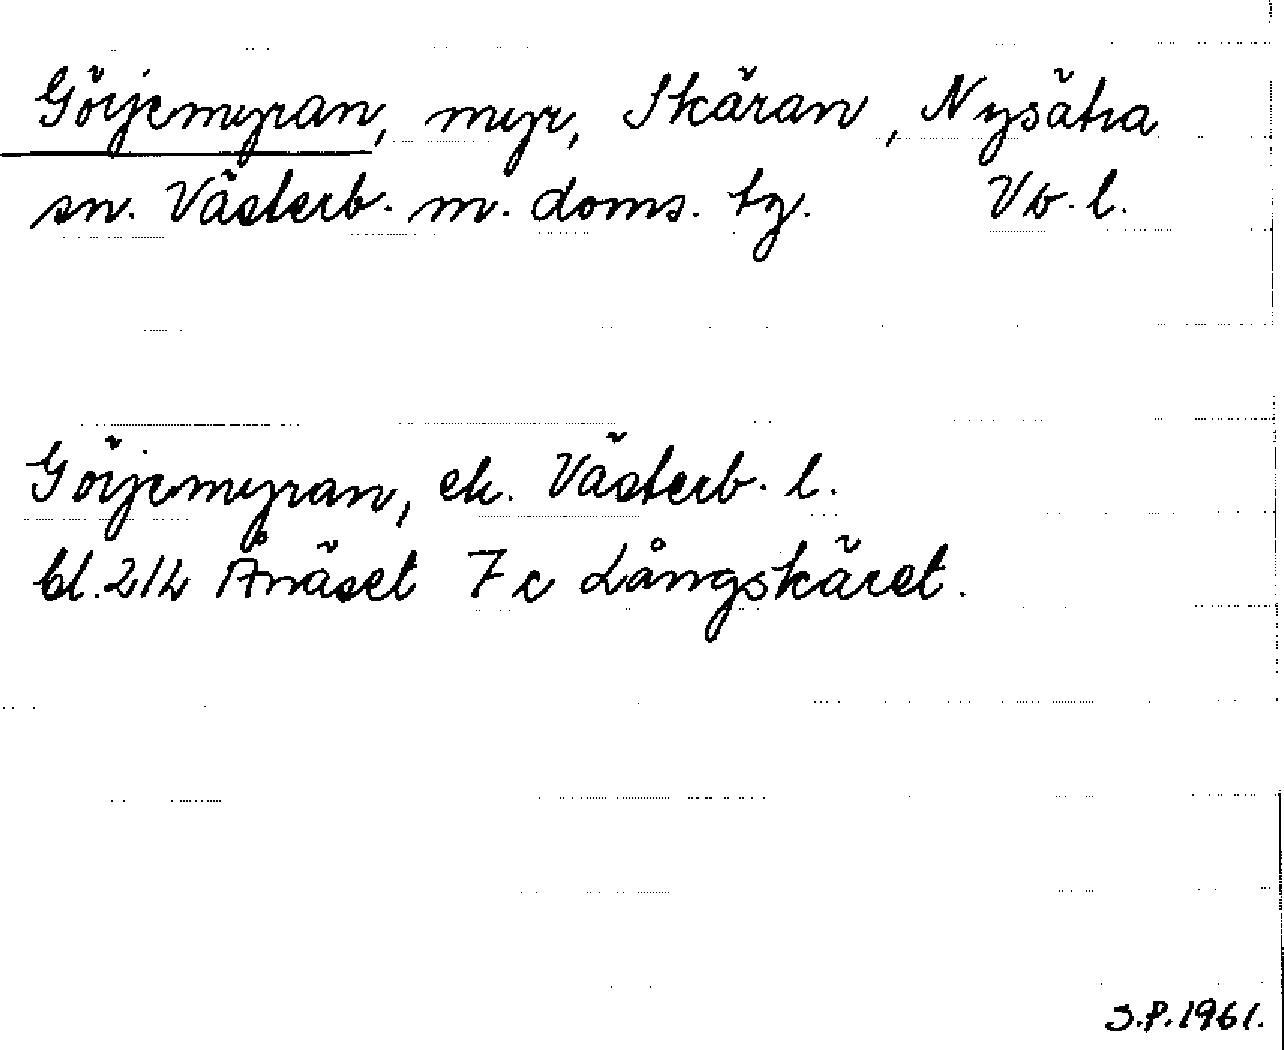 Görjemyran, myr, Skäran, Nysätra
sn. Västerb. m. doms. tg. Vb. l.
Görjemyran, ek. Västerb. l.
bl. 214 Ånäset 7 c Långskäret.
S.P. 1961.